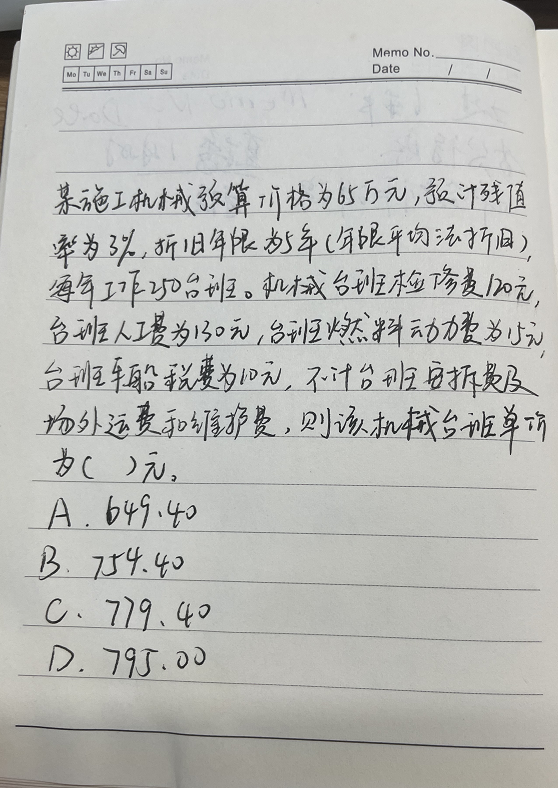 Memo No.
Mo Tu We Th Fr Sa Su
Date / /
某施工机械预算价格为65万元,预计残值
率为3%,折旧年限为5年(年限平均法折旧),
每年工作250台班。机械台班检修费120元,
台班人工费为130元,台班燃料动力费为15元,
台班车船税费为10元,不计台班安拆费及
场外运费和维护费,则该机械台班单价
为( )元。
A. 649.40
B. 754.40
C. 779.40
D. 795.00